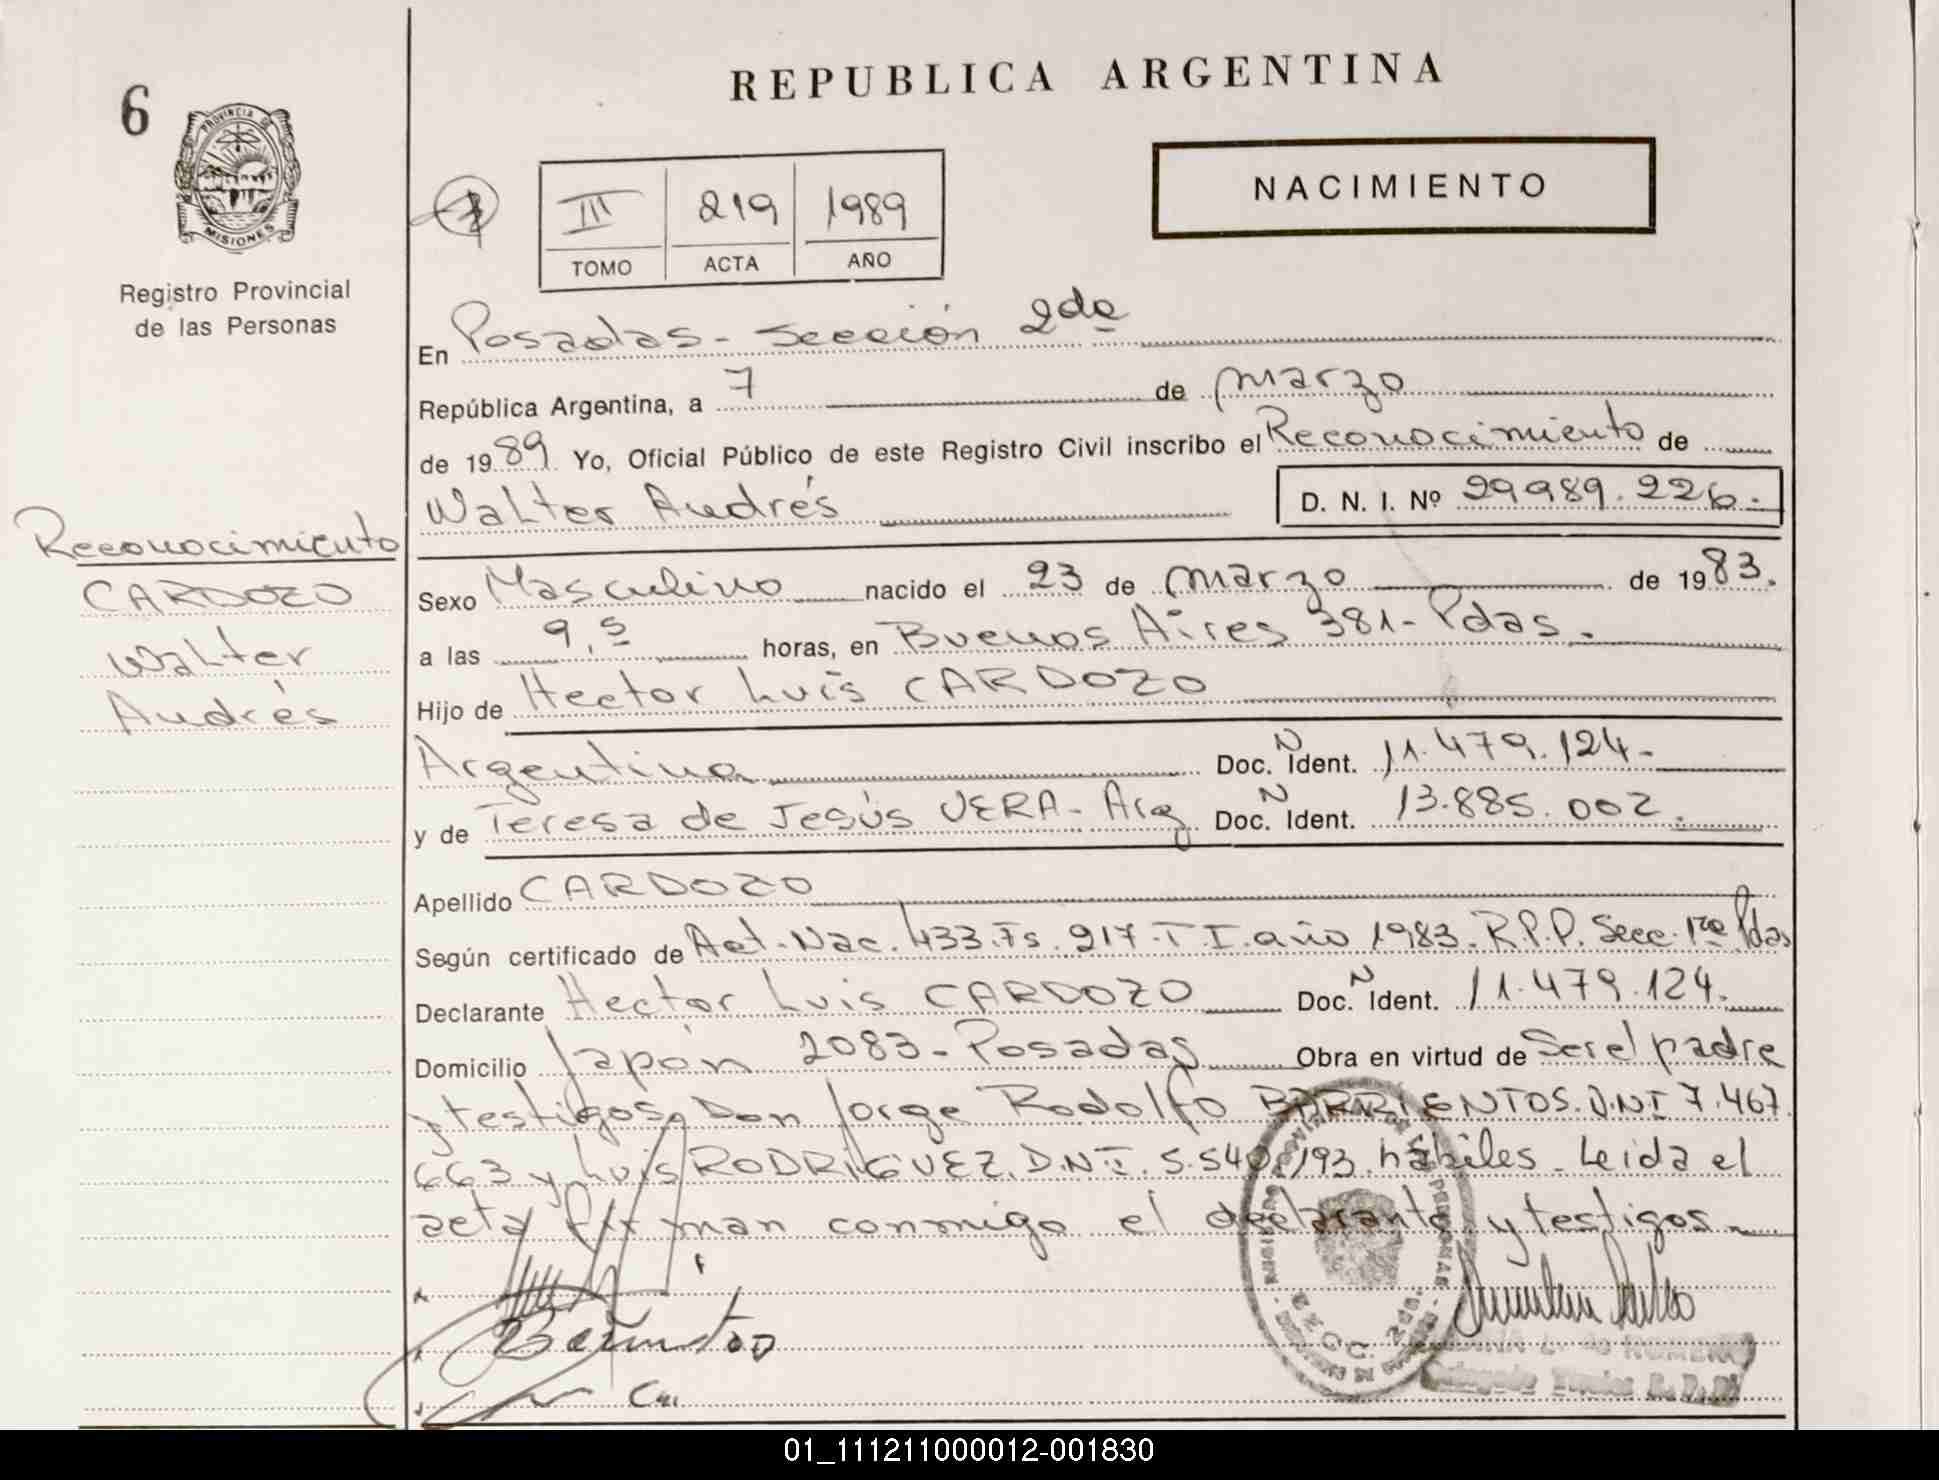 6
PROVINCIA DE
MISIONES
Registro Provincial
de las Personas
REPUBLICA ARGENTINA
NACIMIENTO
III 219 1989
TOMO ACTA AÑO
En Posadas - Sección 2da
República Argentina, a 7 de marzo
de 1989 Yo, Oficial Público de este Registro Civil inscribo el Reconocimiento de
Walter Andrés D. N. I. Nº 29989.226.-
Reconocimiento
CARDOZO
Walter
Andrés
Sexo Masculino nacido el 23 de marzo de 1983.
a las 9,5 horas, en Buenos Aires 381 - Pdas.
Hijo de Hector Luis CARDOZO
Argentina Doc. N Ident. 11.479.124.-
y de Teresa de Jesús VERA - Arg Doc. N Ident. 13.885.002.
Apellido CARDOZO
Según certificado de Act. Nac. 433. Fs. 217. T I. año 1983. R.P.P. Secc. 1ra Pdas
Declarante Hector Luis CARDOZO Doc. N Ident. 11.479.124.
Domicilio Japón 2083 - Posadas Obra en virtud de Ser el padre
y testigos, Don Jorge Rodolfo BARRIENTOS. D.N.I 7.467.
663 y Luis RODRIGUEZ. D.N.I. 5.540.193. hábiles. Leida el
acta firman conmigo el declarante y testigos.
SECC. 2da.
01_111211000012-001830